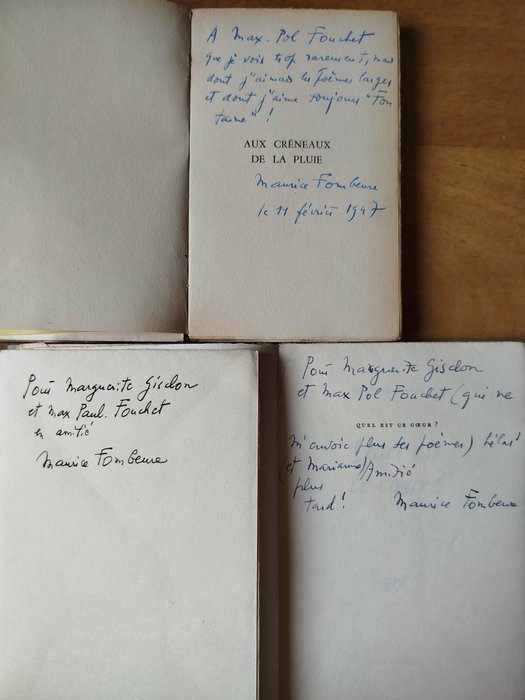 A Max-Pol Fouchet
que je vois trop rarement, mais
dont j'aimais les poèmes larges
et dont j'aime toujours "Fon
taine" !
AUX CRÉNEAUX
DE LA PLUIE
Maurice Fombeure
le 11 février 1947
Pour Marguerite Gisclon
et Max Paul. Fouchet
en amitié
Maurice Fombeure
Pour Marguerite Gisclon
et Max Pol Fouchet (qui ne
QUEL EST CE CŒUR ?
m'envoie plus ses poèmes) hélas!
(et Marianne) Amitié
plus
tard !
Maurice Fombeure